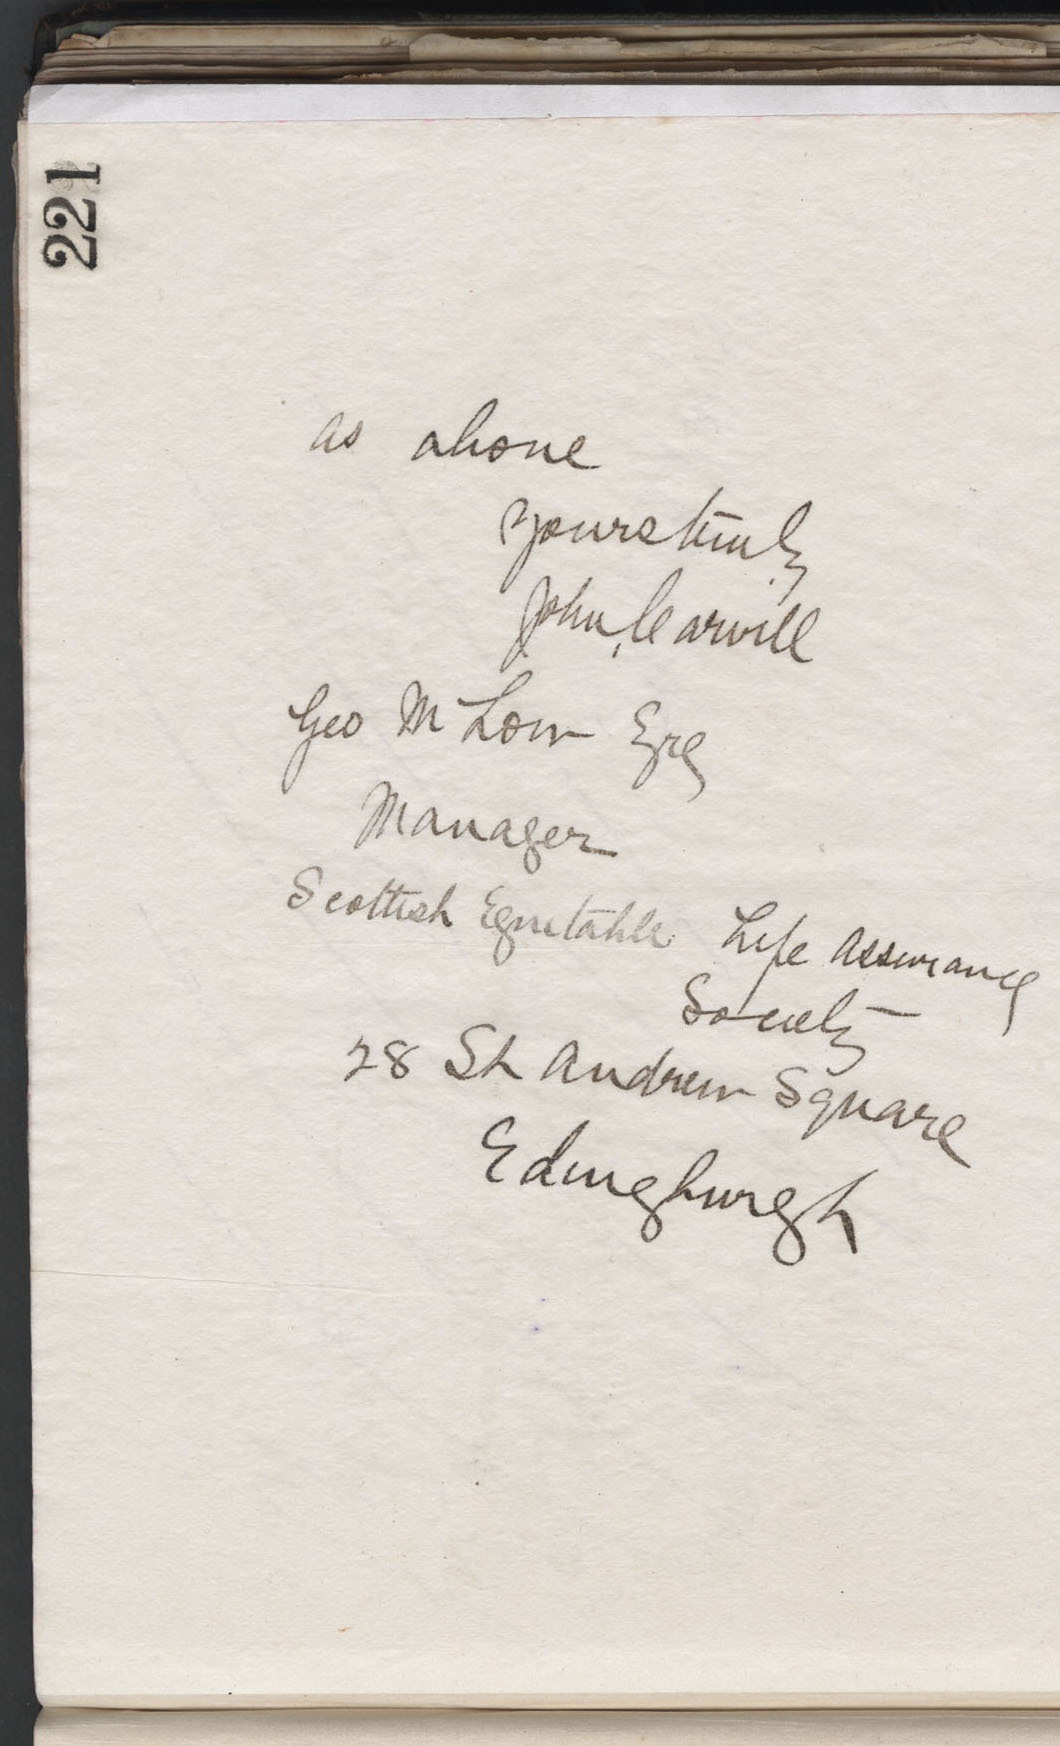 221
as above
Yours truly
John Carvill
Geo M Low Esq
Manager
Scottish Equitable Life Assurance
Society
28 St Andrew Square
Edingburgh